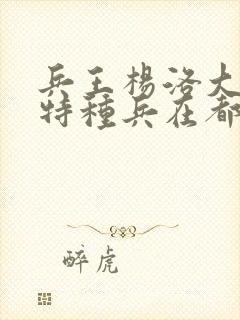 兵王楊洛大
特種兵在都
醉虎